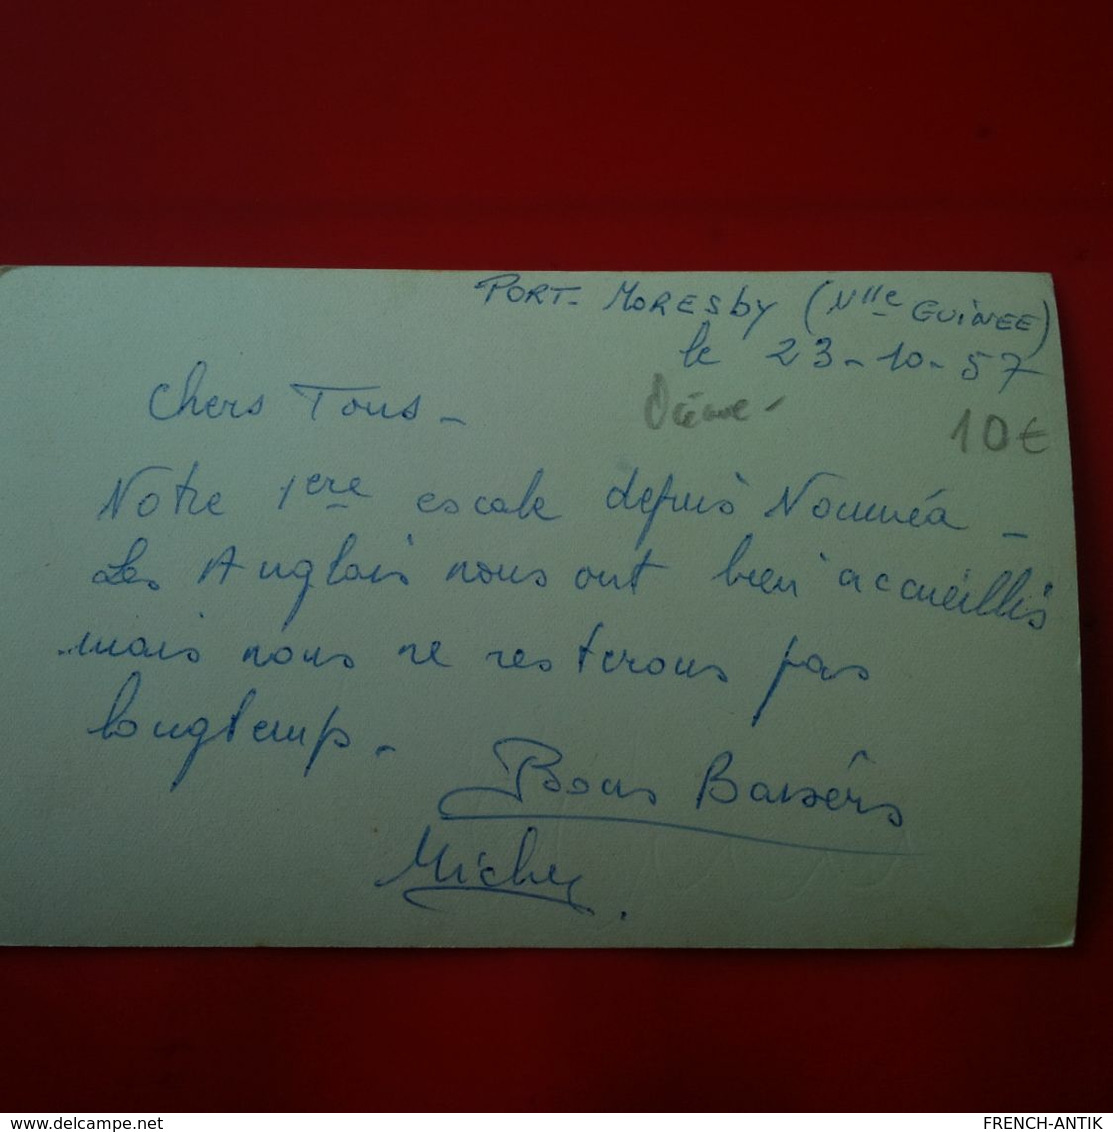 PORT-MORESBY (Nlle GUINEE)
le 23-10-57
Chers Tous -
10€
Notre 1ere escale depuis Nouméa -
Les Anglais nous ont bien accueillis
mais nous ne resterons pas
longtemps -
Bons Baisers
Michel
www.delcampe.net
FRENCH-ANTIK